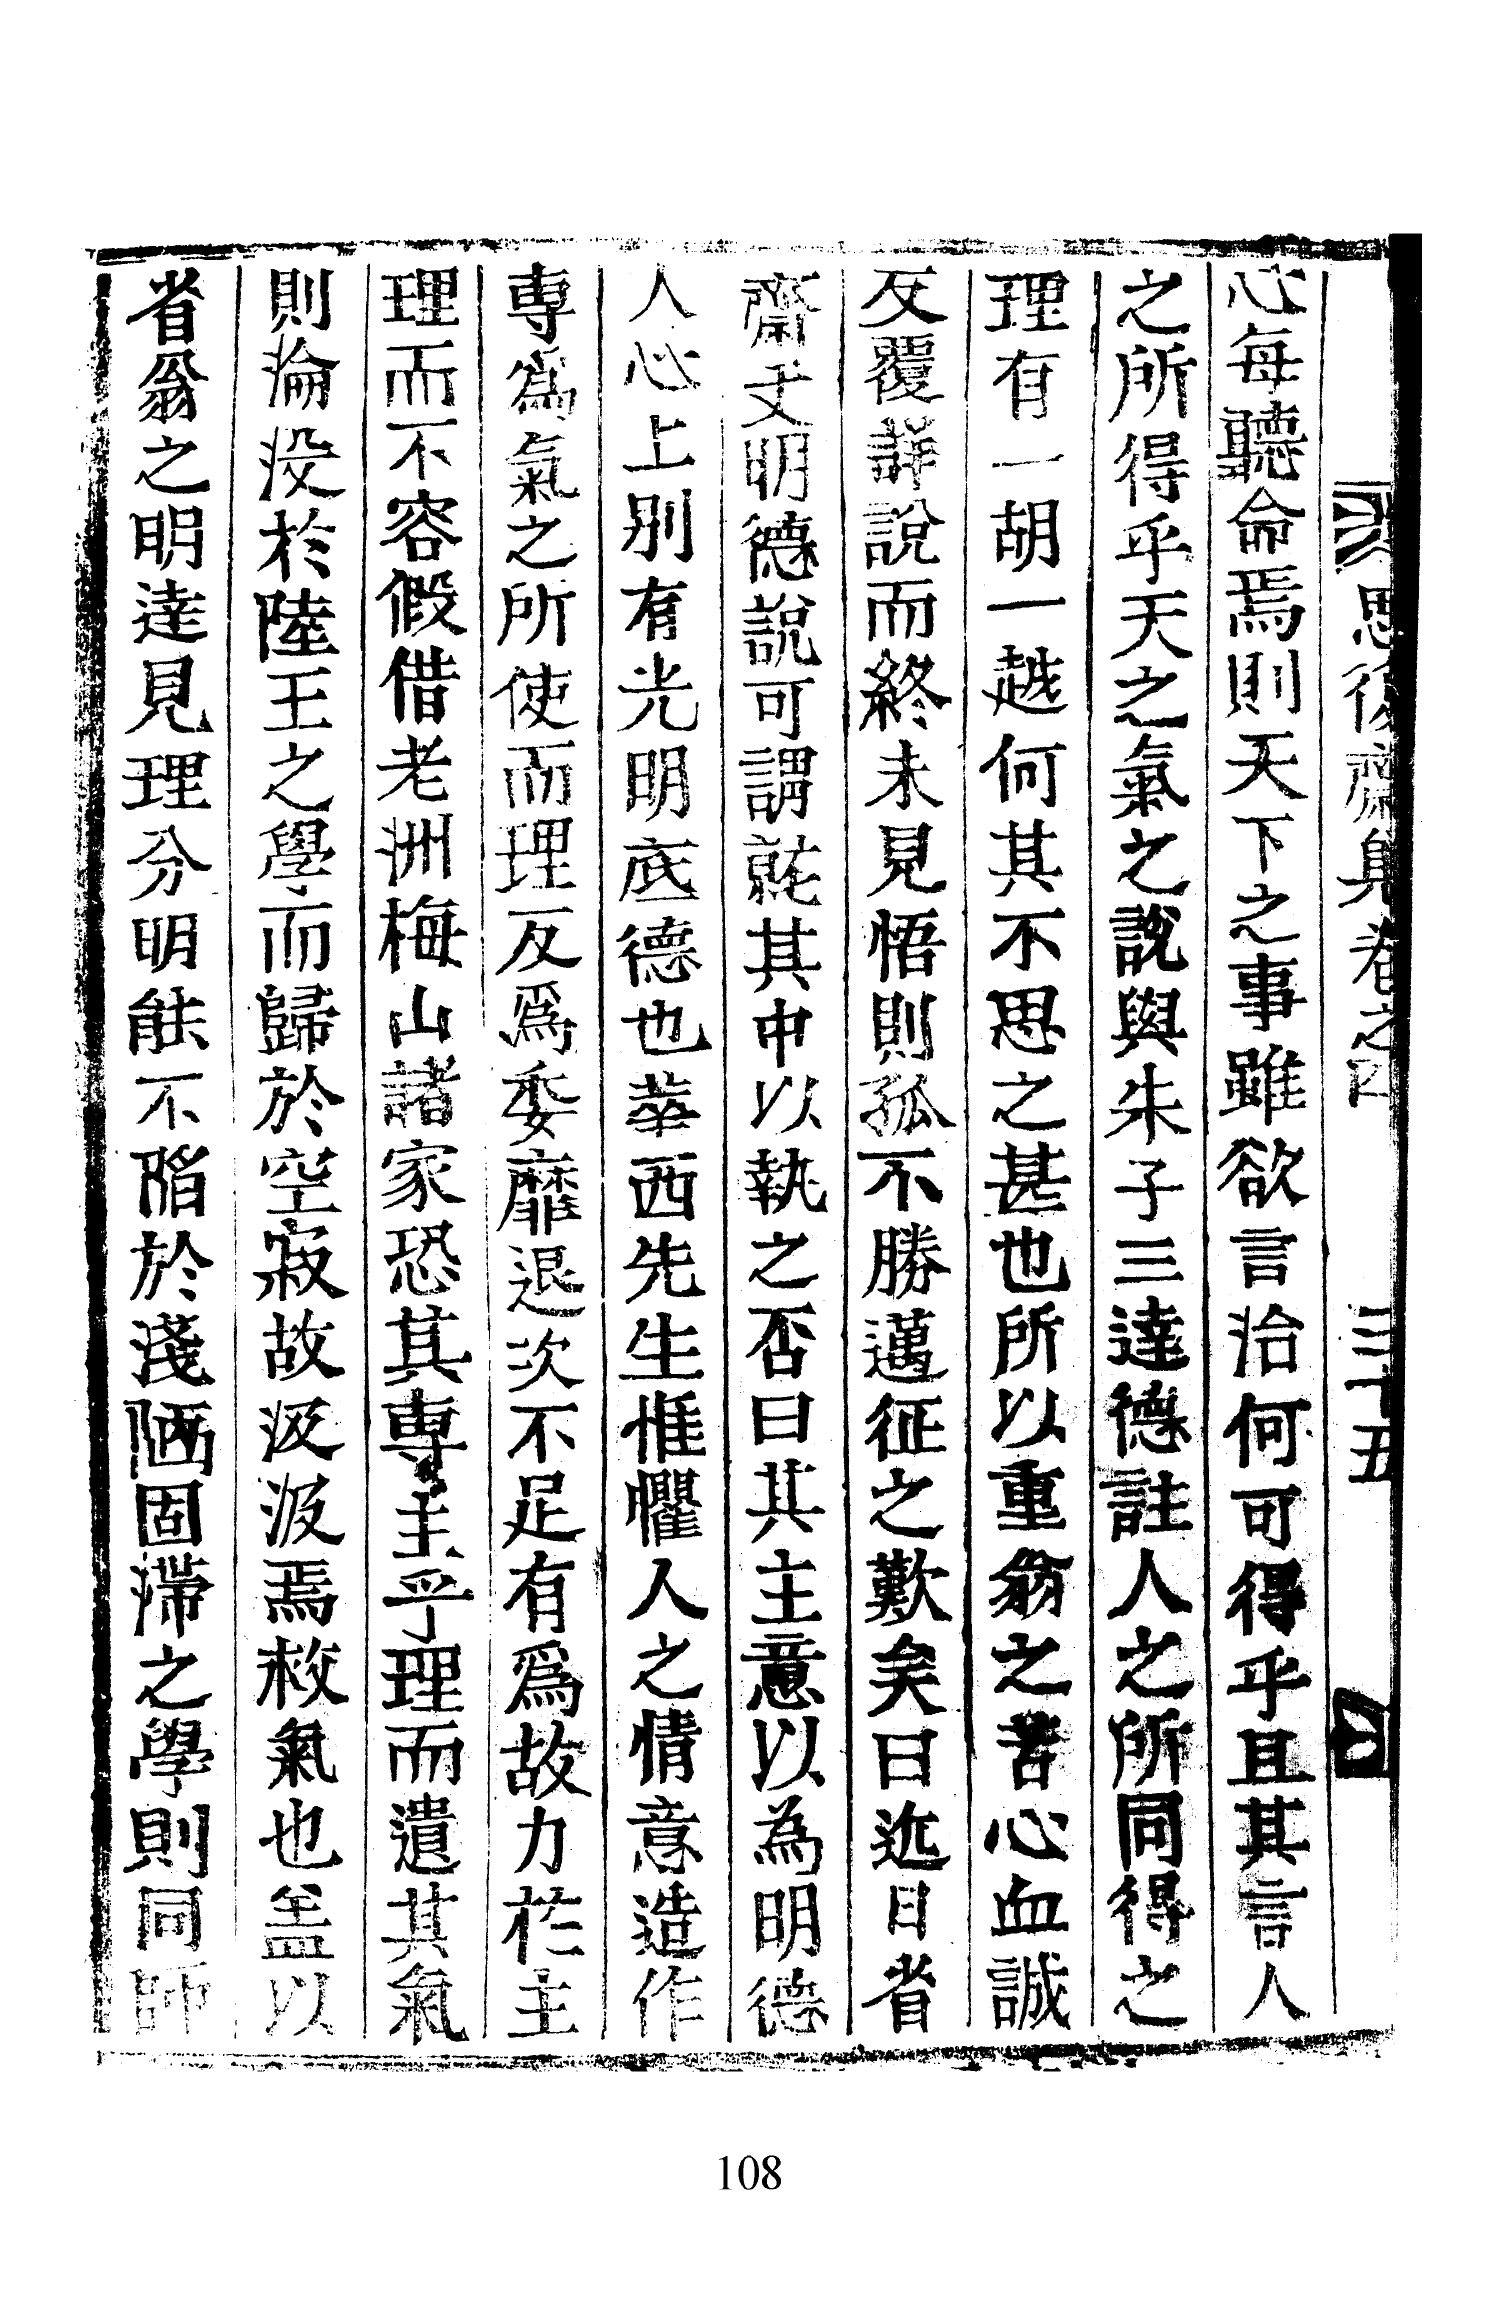 思復齋集卷之四 三十五
心每聽侖焉則天下之事雖欲言治何可得乎且其言人
之所得乎天之氣之說與朱子三達德註人之所同得之
理有一胡一越何其不思之甚也所以重翁之苦心血誠
反覆詳說而終未見悟則孤不勝邁征之歎矣曰近日省
齋文明德說可謂就其中以執之否曰其主意以為明德
人心上別有光明底德也華西先生惟懼人之情意造作
專爲氣之所使而理反爲委靡退次不足有爲故力於主
理而不容假借老洲梅山諸家恐其專主乎理而遺其氣
則淪没於陸王之學而歸於空寂故汲汲焉救氣也盖以
省翁之明達見理分明能不陷於淺陋固滯之學則同師
108